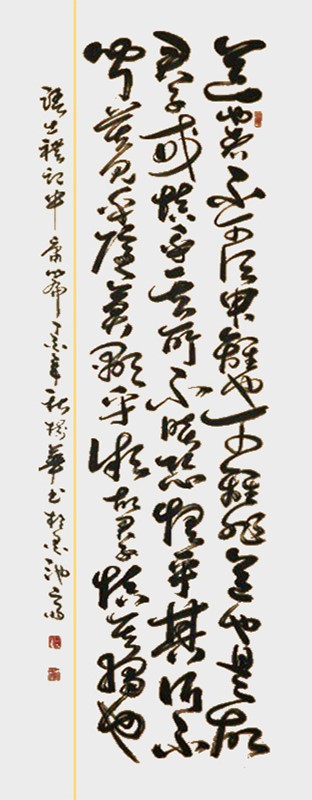 道也者不可須臾離也可離非道也是故
君子戒慎乎其所不睹恐懼乎其所不
聞莫見乎隱莫顯乎微故君子慎其獨也
語出禮記中庸篇年秋華书於墨池